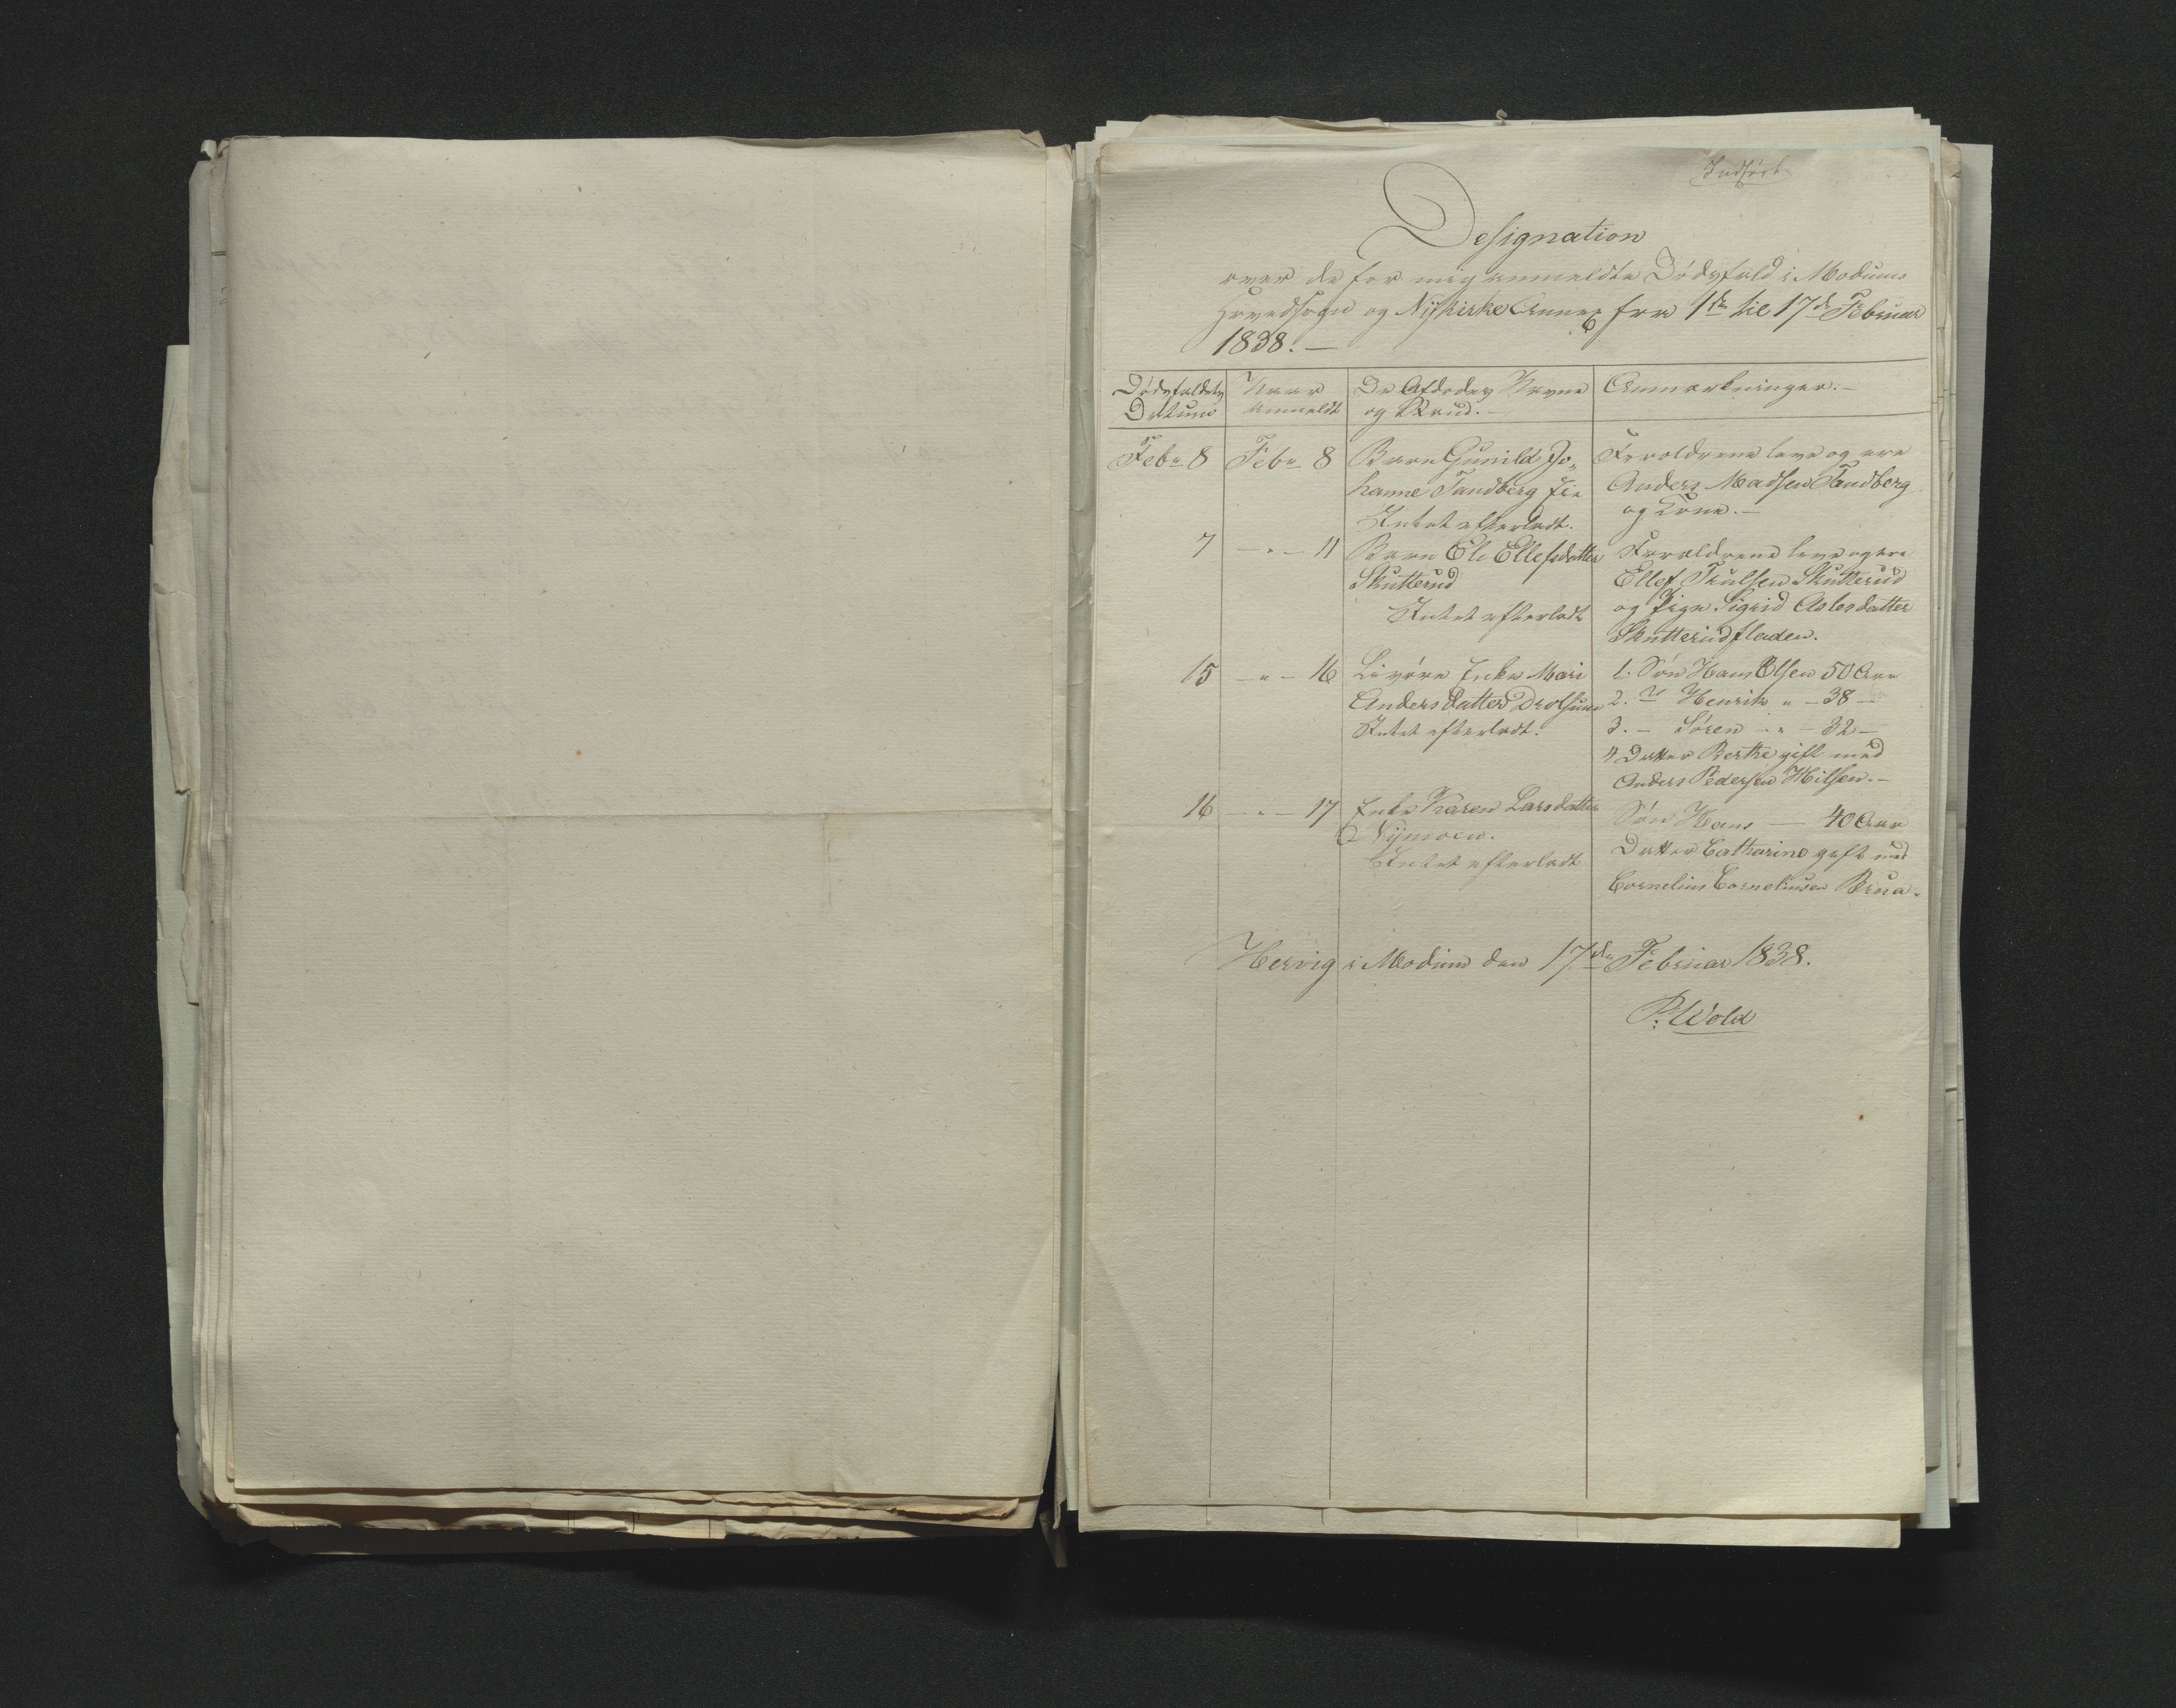 Indført
Designation
over de for mig anmeldte Dødsfald i Modums
Hovedsogn og Nykirke Annex fra 1de til 17de Februar
1838. —
Dødsfaldets
Datum
Naar
anmeldt
De Afdødes Navne
og Stand. —
Anmærkninger. —
Febr 8
Febr 8
Barn Gunild Jo-
hanne Tandberg
Intet efterladt.
Forældrene leve og ere
Anders Madsen Tandberg
og Kone. —
7
— " — 11
Barn Eli Ellefsdatter
Skutterud
Intet efterladt
Forældrene leve og ere
Ellef Trulsen Skutterud
og Pige Sigrid Aslesdatter
Skutterudfladen.
15
— " — 16
Enke Mari
Andersdatter Drolsum
Intet efterladt.
1. Søn Hans Olsen 50 Aar
2. " Henrik " — 38 —
3. — Søren — " — 32 —
4 Datter Berthe gift med
Anders Pedersen Hilsen. —
16
— " — 17
Enke Karen Larsdatter
Nymoen.
Intet efterladt
Søn Hans — 40 Aar
Datter Catharine gift med
Cornelius Corneliusen Brua.
Hervig i Modum den 17de Februar 1838.
P. Wold